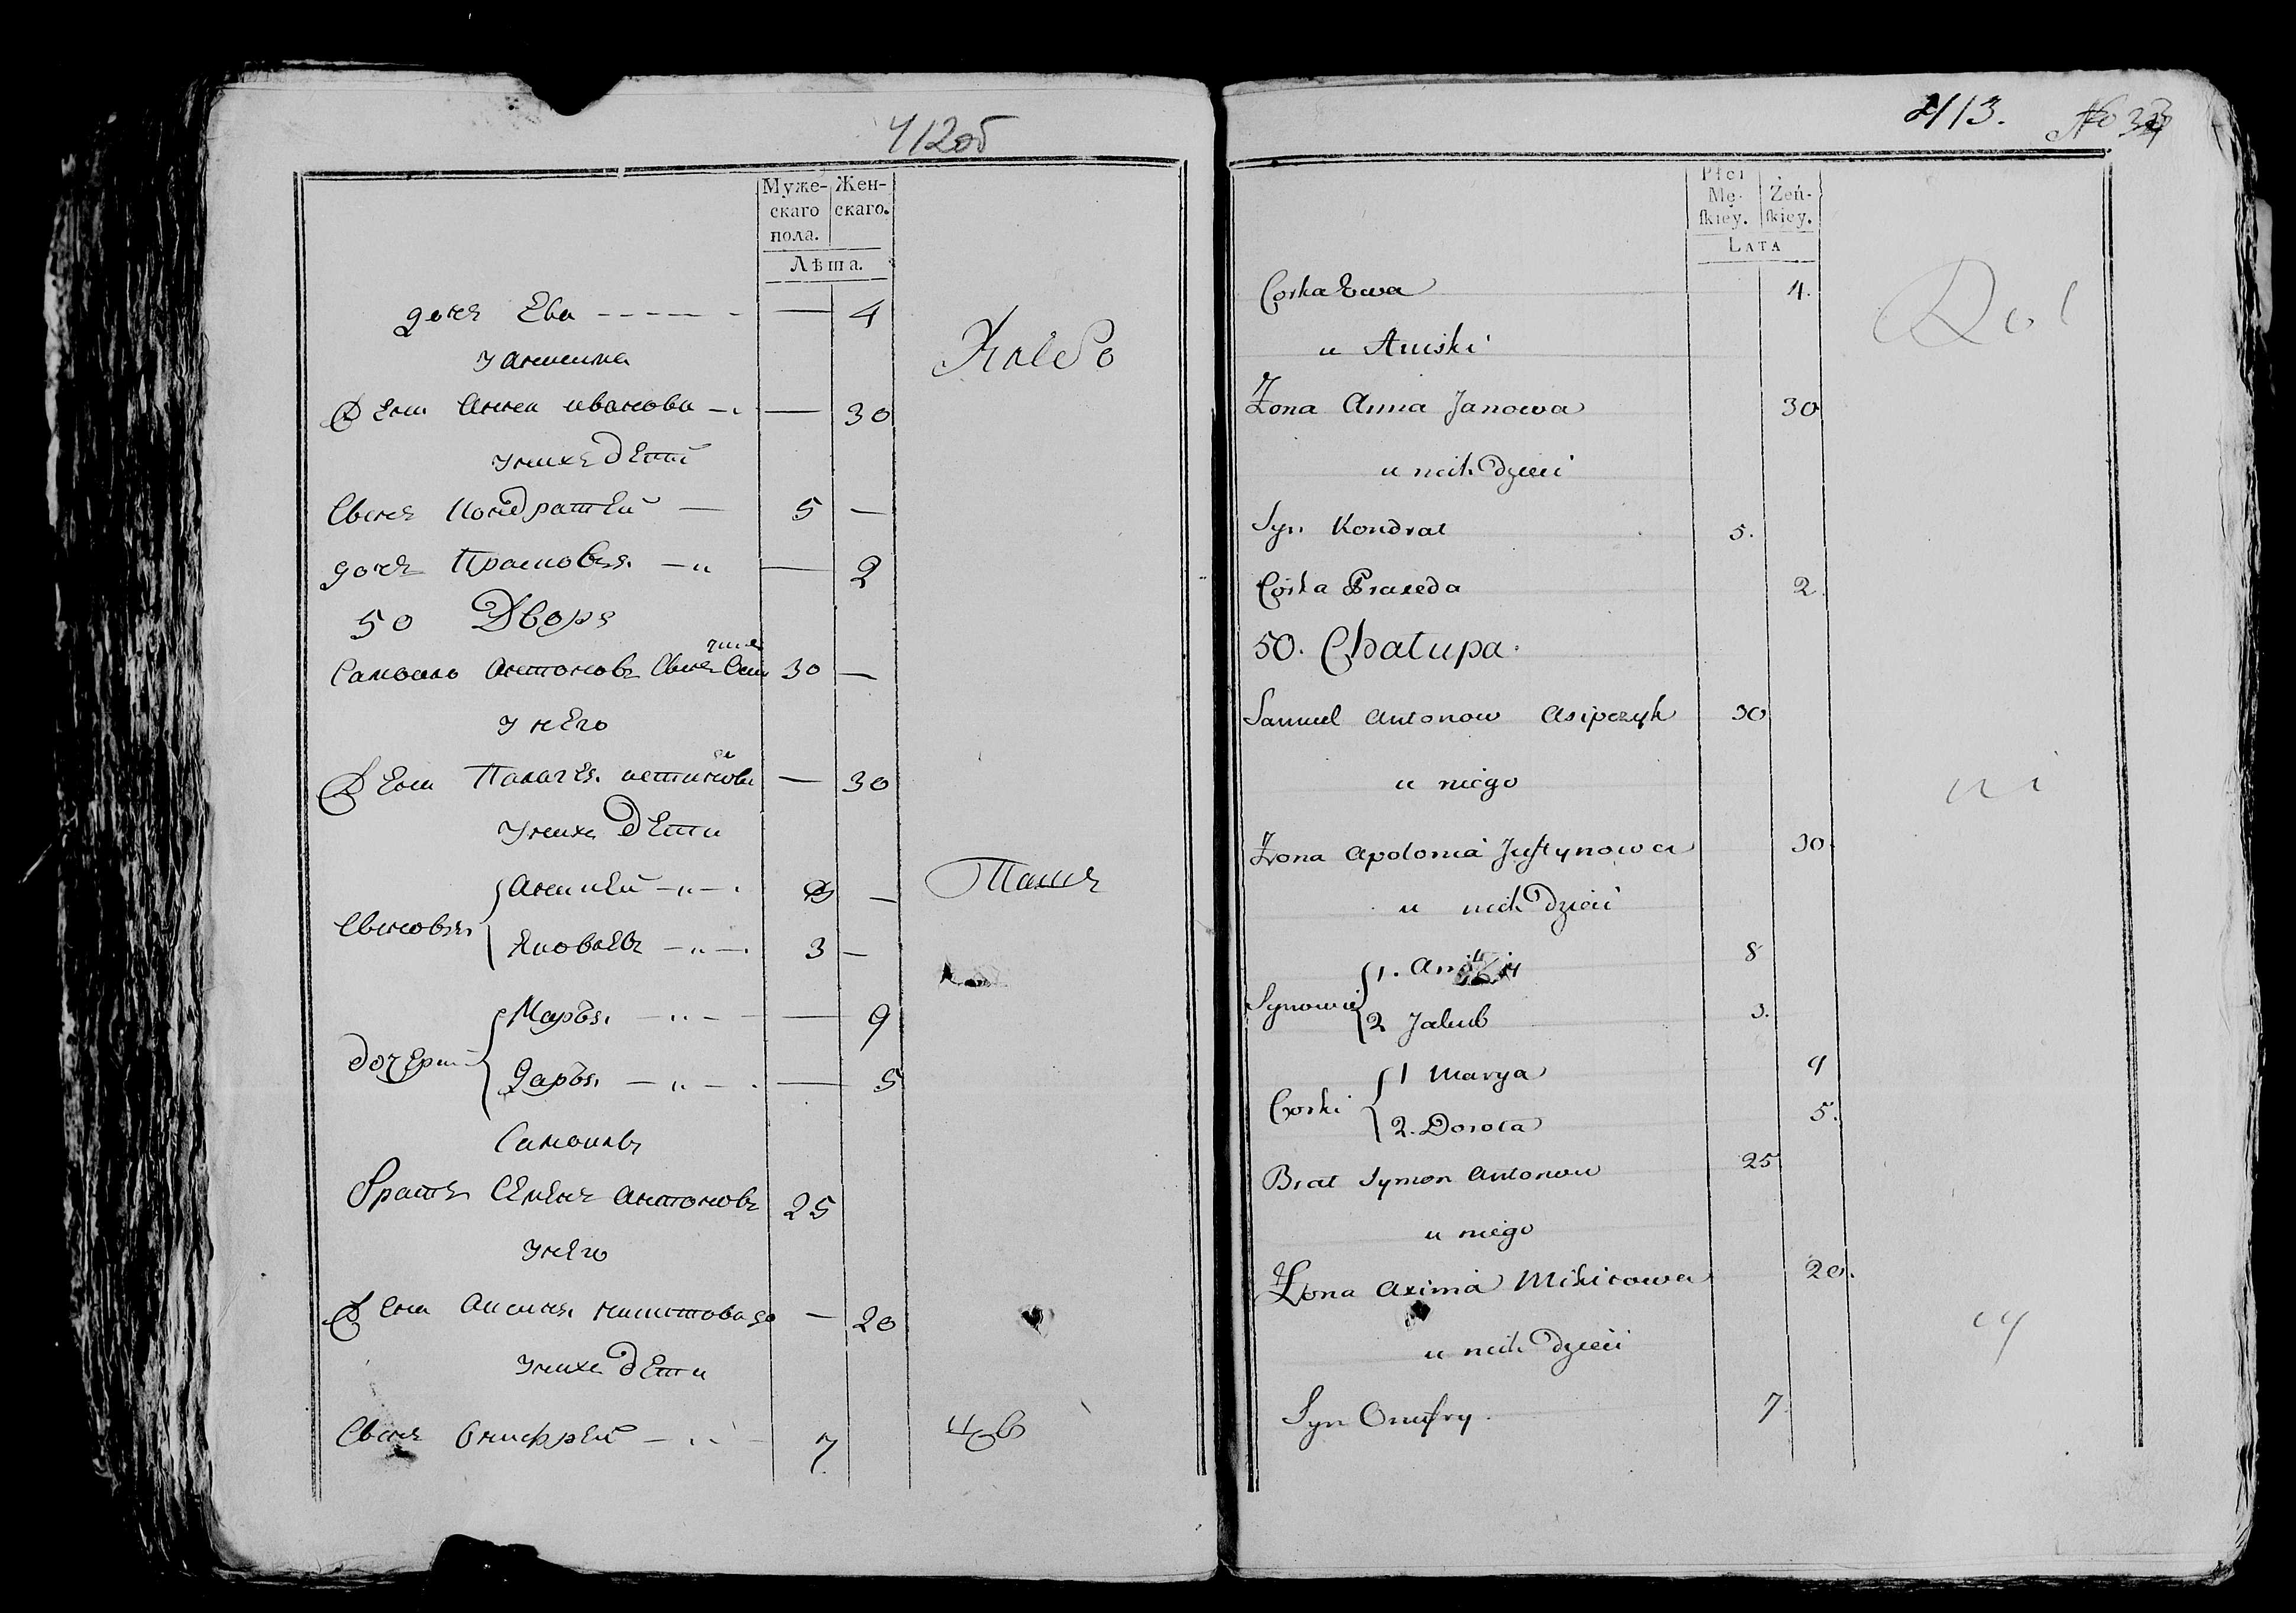 412об
Муже-
скаго
пола.
Жен-
скаго.
Лѣта.
дочь Ева - - - - - — 4
У
Жена Анна иванова — 30
У нихъ дЕти
Сынъ Кондратей — 5 —
дочь Прасковья — 2
50 Дворъ
Самоель Антоновъ Сынъ 30 —
У нЕго
Жена Палагея — 30
У нихъ дЕти
Сыновья
Яковлевъ 3 —
дочери
Марья — 9
Дарья — 5
Самоилъ
Братъ СЕмЕнъ Антоновъ 25
У нЕго
Жена Аксинья — 20
У нихъ дЕти
Сынъ Онисфрей 7
Хлебо
413. No 33
Płci
Mę-
skiey.
Żeń-
skiey.
LATA
Corka Ewa 4.
u
Żona Anna Janowa 30
u nich Dzieci
Syn Kondrat 5.
Corka Praxeda 2.
50. Chałupa.
Samuel Antonow Asipczyk 30
u niego
Żona Apolonia Justynowa 30
u nich Dzieci
Synowie
1.
8
2 Jakub 3.
Corki
1 Marya 9
2. Dorota 5.
Brat Symon Antonow 25
u niego
Żona Axinia Mikitowa 20.
u nich Dzieci
Syn Onufry. 7